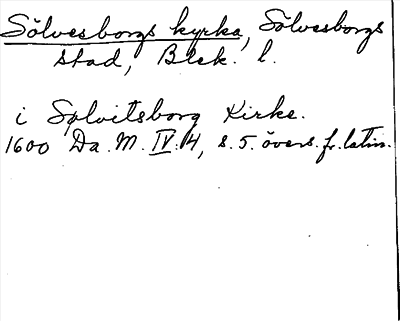 Sölvesborgs kyrka, Sölvesborgs
stad, Blek. l.
i Sølvitsborg Kirke.
1600 Da. M. IV:4, s. 5. övers. fr. latin.